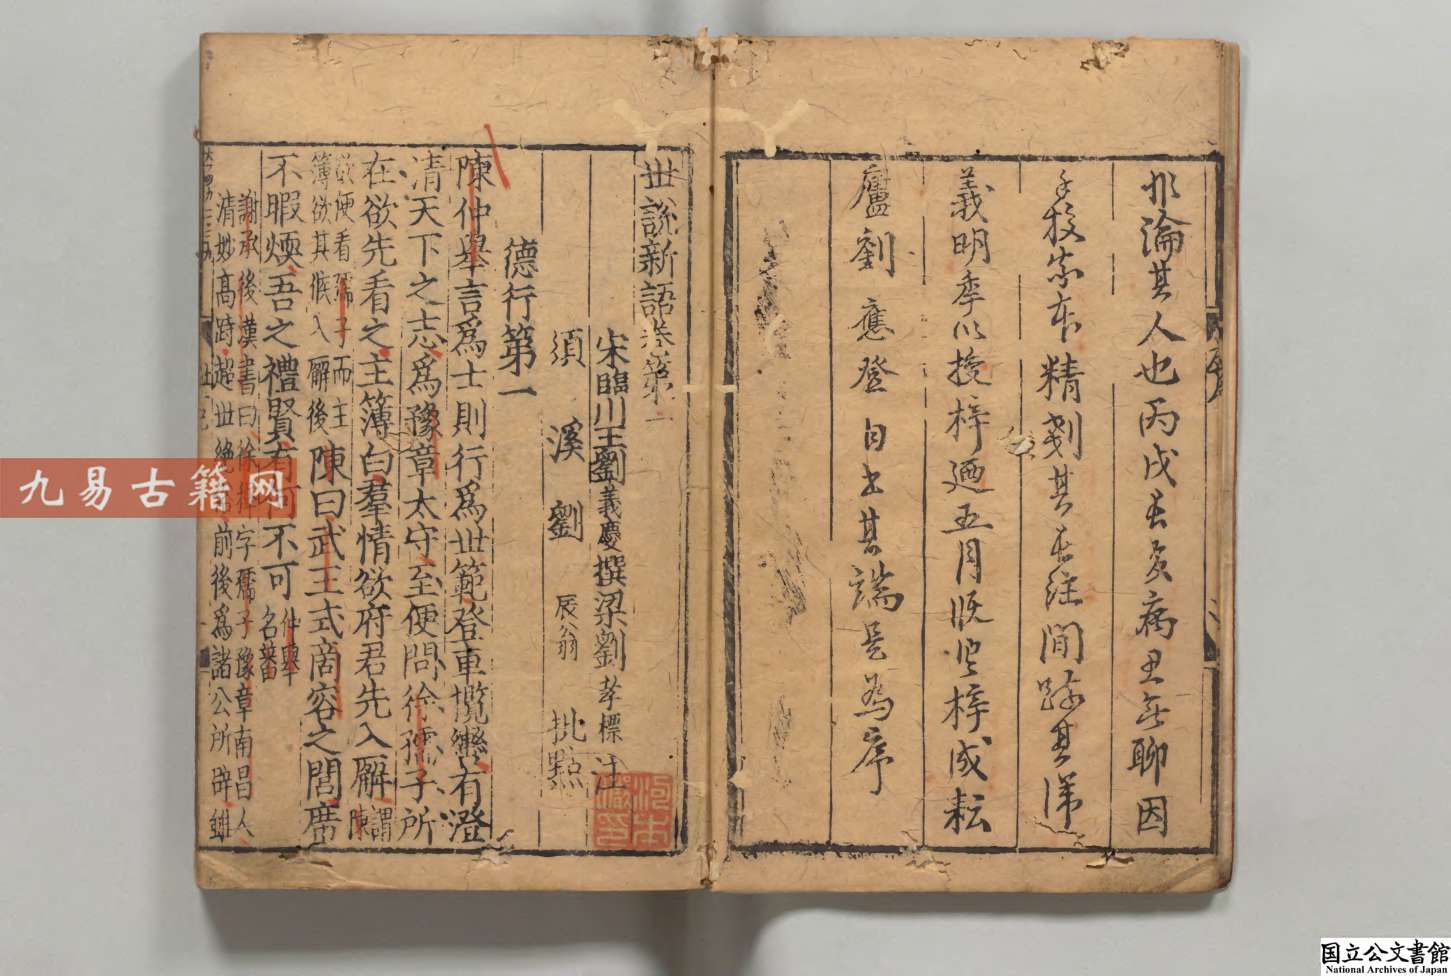 其人也丙戌長夏病思無聊因
手校家本精剗其長註間疏其滯
義明季以授梓迺五月既望梓成耘
廬劉應登自書其端是為序
世說新語卷第一
宋臨川王劉義慶撰梁劉孝標注
須溪劉辰翁批點
德行第一
陳仲舉言為士則行為世範登車攬轡有澄
清天下之志為豫章太守至便問徐孺子所
在欲先看之主簿白羣情欲府君先入廨
陳曰武王式商容之閭席
不暇煖吾之禮賢有何不可
仲舉
名蕃
謝承後漢書曰徐穉字孺子豫章南昌人
清妙高跱超世絕俗前後為諸公所辟雖
九易古籍网
国立公文書館
National Archives of Japan